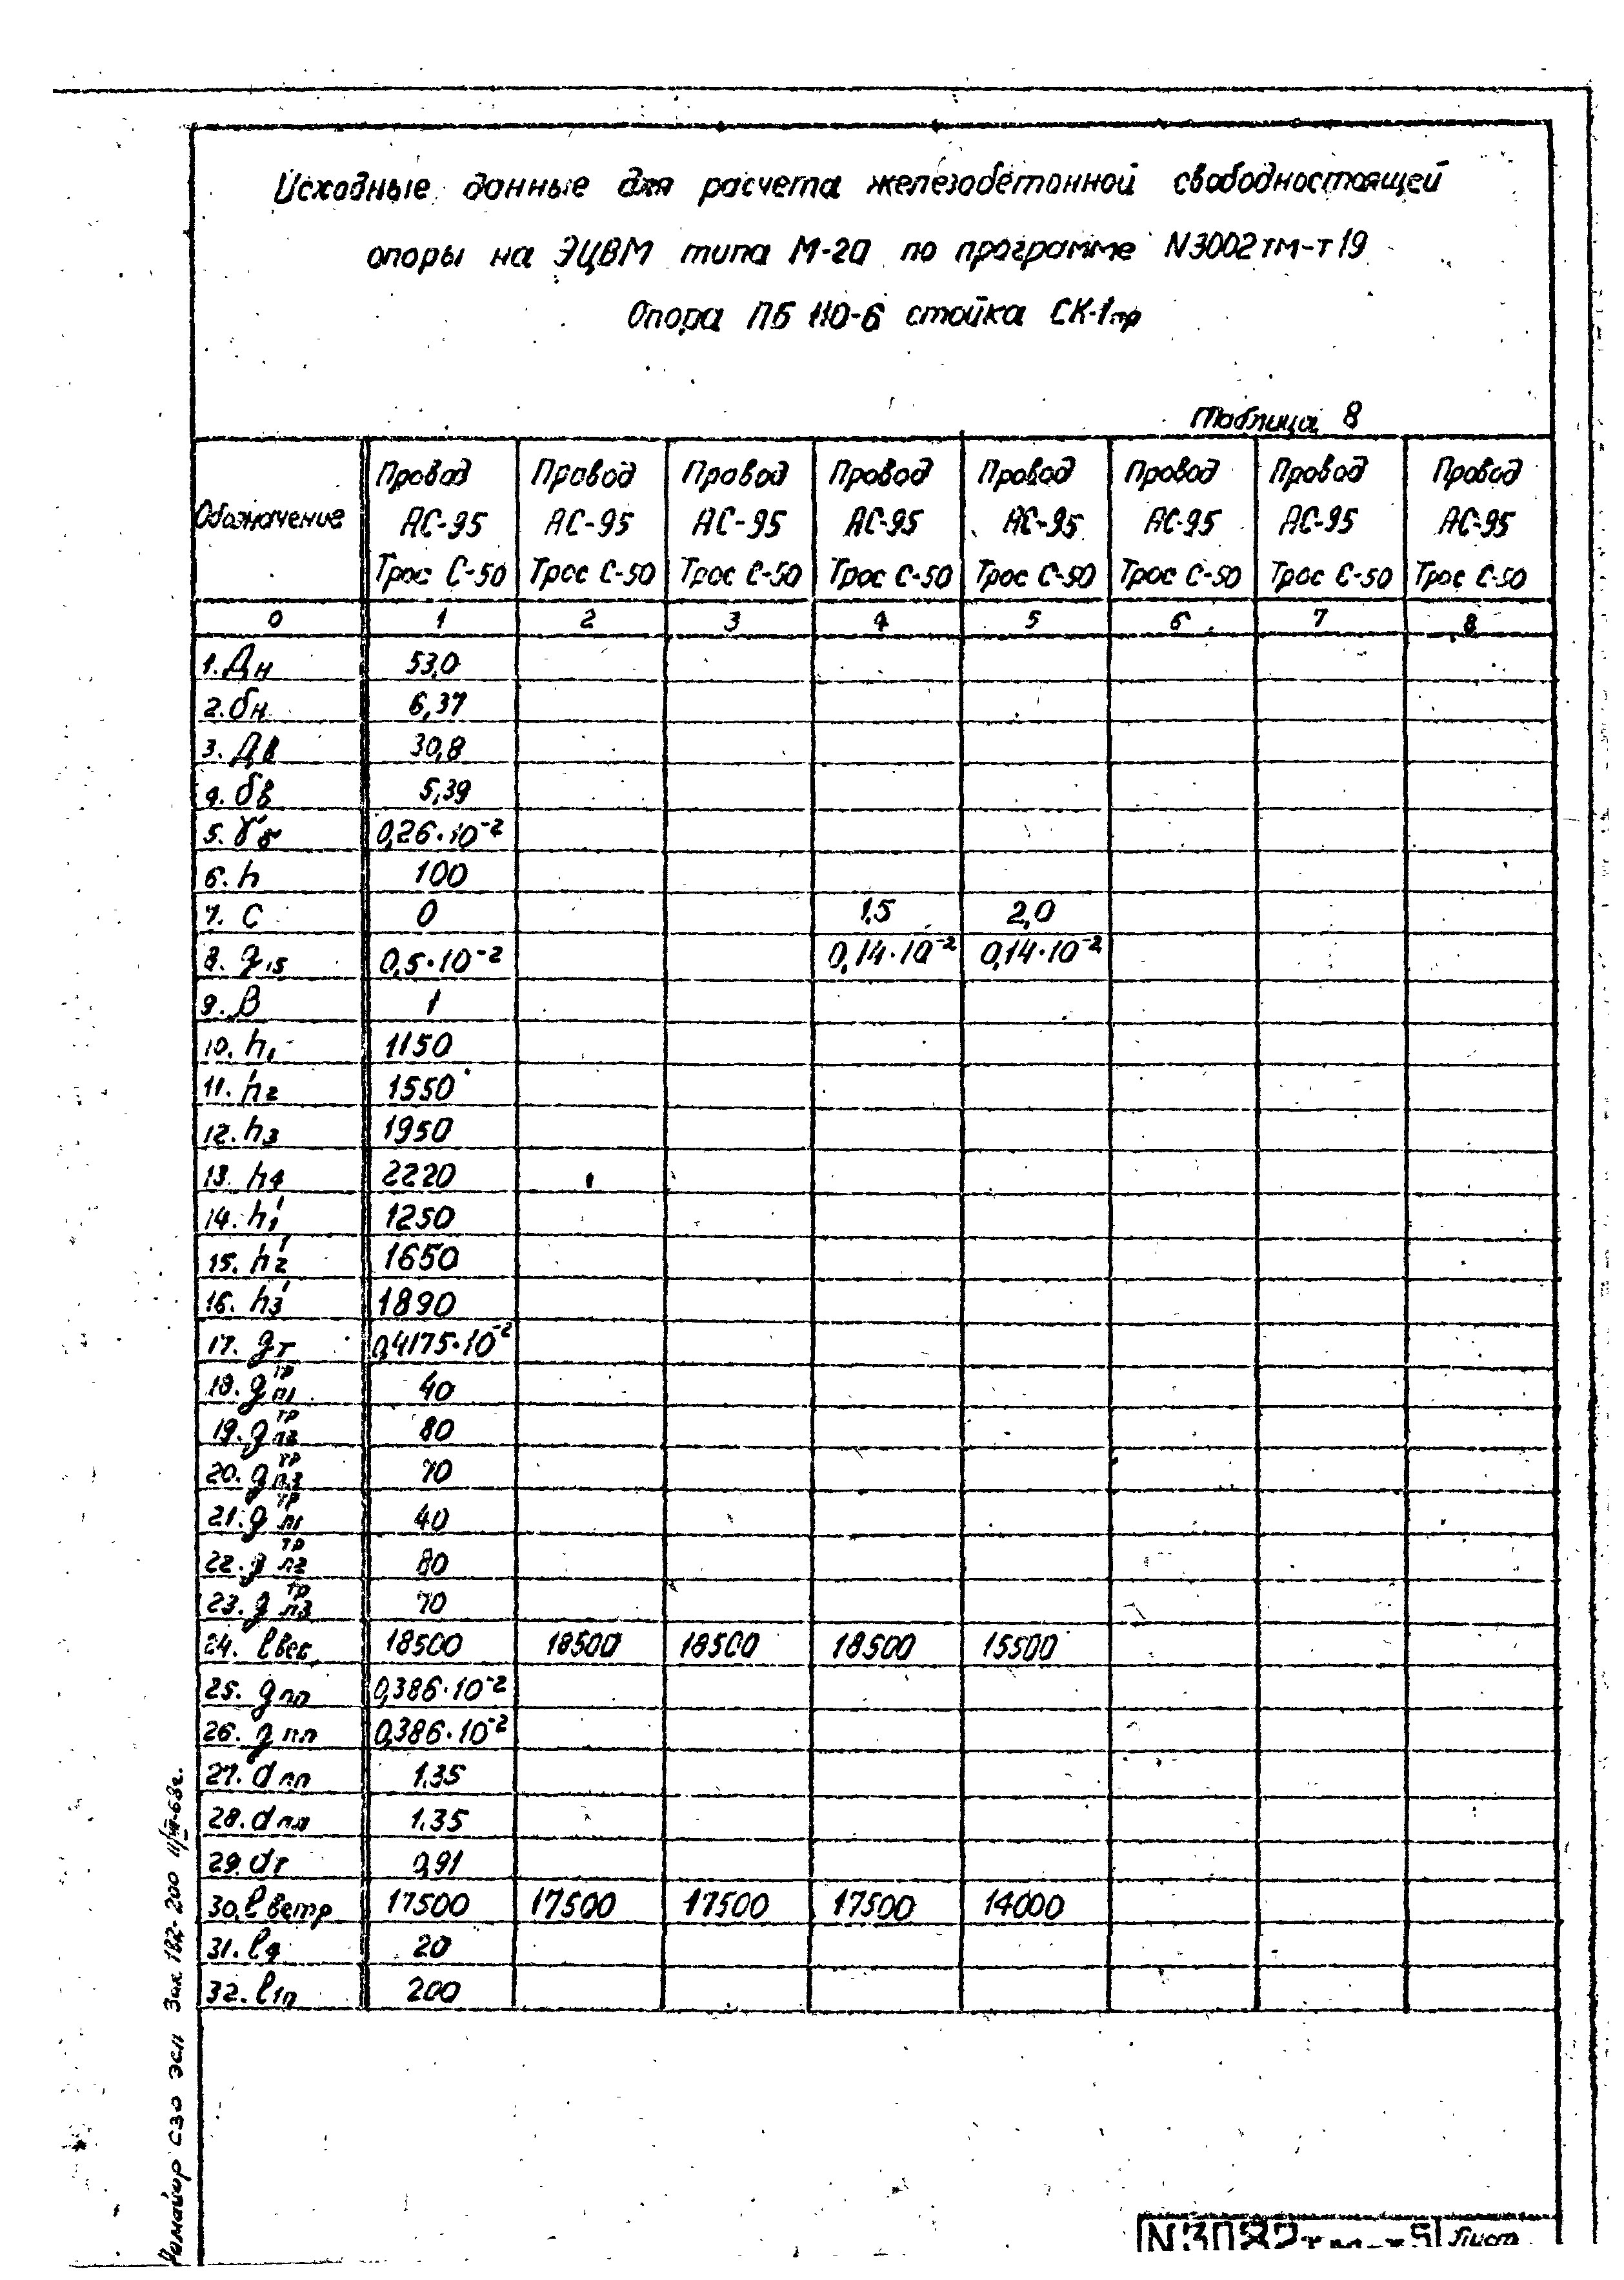 Исходные данные для расчета железобетонной свободностоящей
опоры на ЭЦВМ типа М-20 по программе N3002тм-т19
Опора ПБ 110-6 стойка СК-1пр
Таблица 8
Обозначение Провод АС-95 Трос С-50 Провод АС-95 Трос С-50 Провод АС-95 Трос С-50 Провод АС-95 Трос С-50 Провод АС-95 Трос С-50 Провод АС-95 Трос С-50 Провод АС-95 Трос С-50 Провод АС-95 Трос С-50
0 1 2 3 4 5 6 7 8
1. Дн 53,0
2. δн 6,37
3. Дв 30,8
4. δв 5,39
5. γб 0,26·10⁻²
6. h 100
7. C 0 1,5 2,0
8. g15 0,5·10⁻² 0,14·10⁻² 0,14·10⁻²
9. B 1
10. h1 1150
11. h2 1550
12. h3 1950
13. h4 2220
14. h1' 1250
15. h2' 1650
16. h3' 1890
17. gт 0,4175·10⁻²
18. g тр п1 40
19. g тр п2 80
20. g тр п3 70
21. g тр л1 40
22. g тр л2 80
23. g тр л3 70
24. lвес 18500 18500 18500 18500 15500
25. gпп 0,386·10⁻²
26. gпл 0,386·10⁻²
27. dпп 1.35
28. dпл 1.35
29. dт 0,91
30. lветр 17500 17500 17500 17500 14000
31. lg 20
32. l1п 200
СЗО ЭСП Зак 182-200 11/VII-63г.
N3082тм-т5 Лист